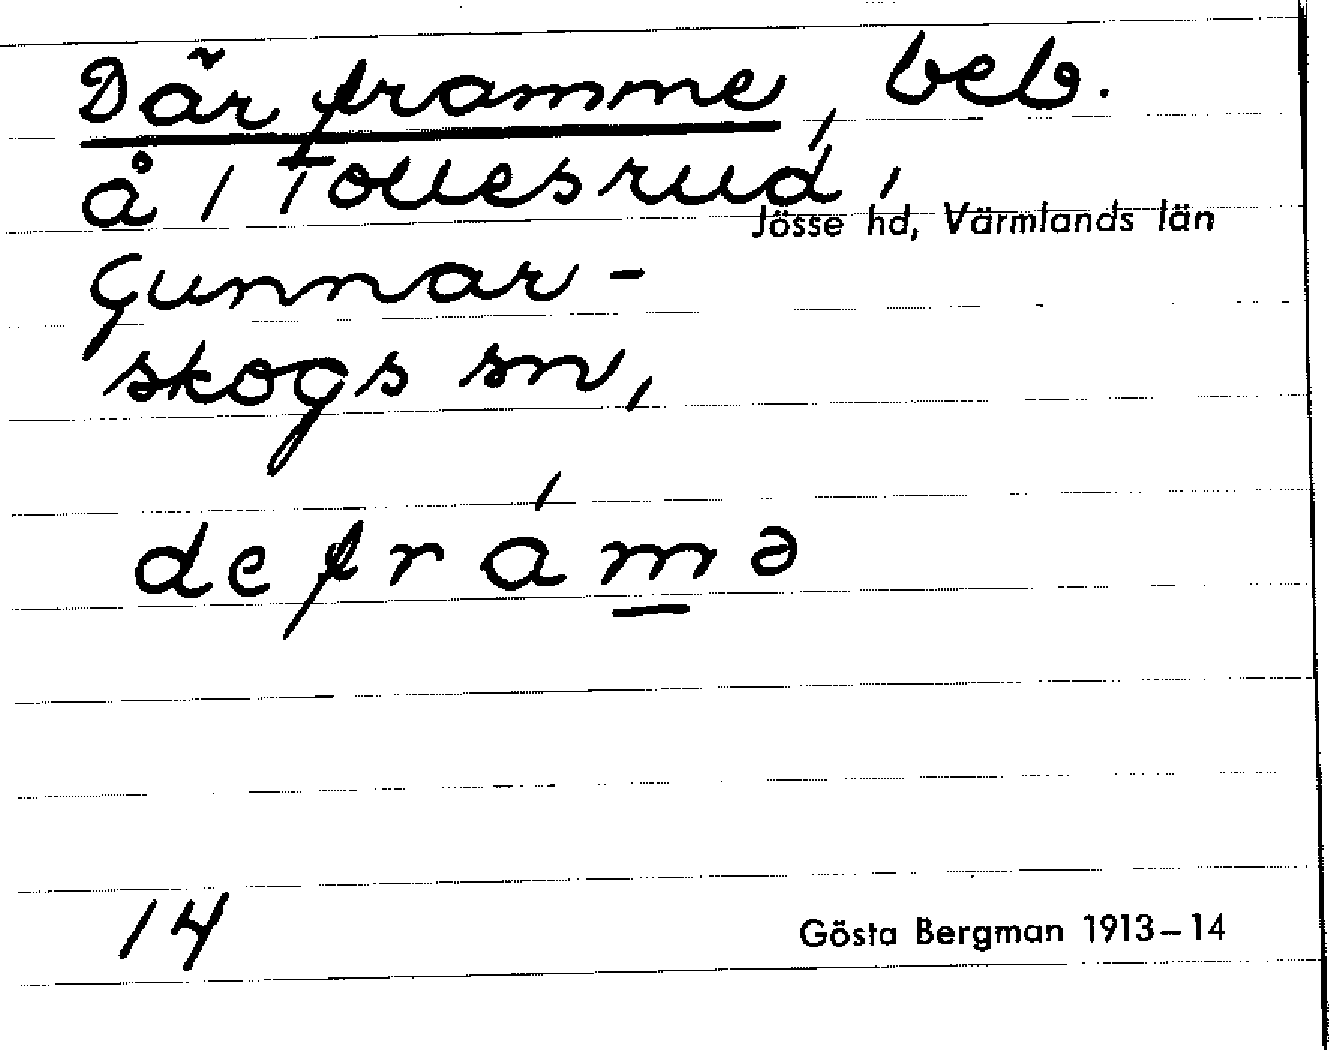 Där framme, beb.
å 1 Tollesrud,
Jösse hd, Värmlands län
Gunnar-
skogs sn,
defrámə
14
Gösta Bergman 1913–14